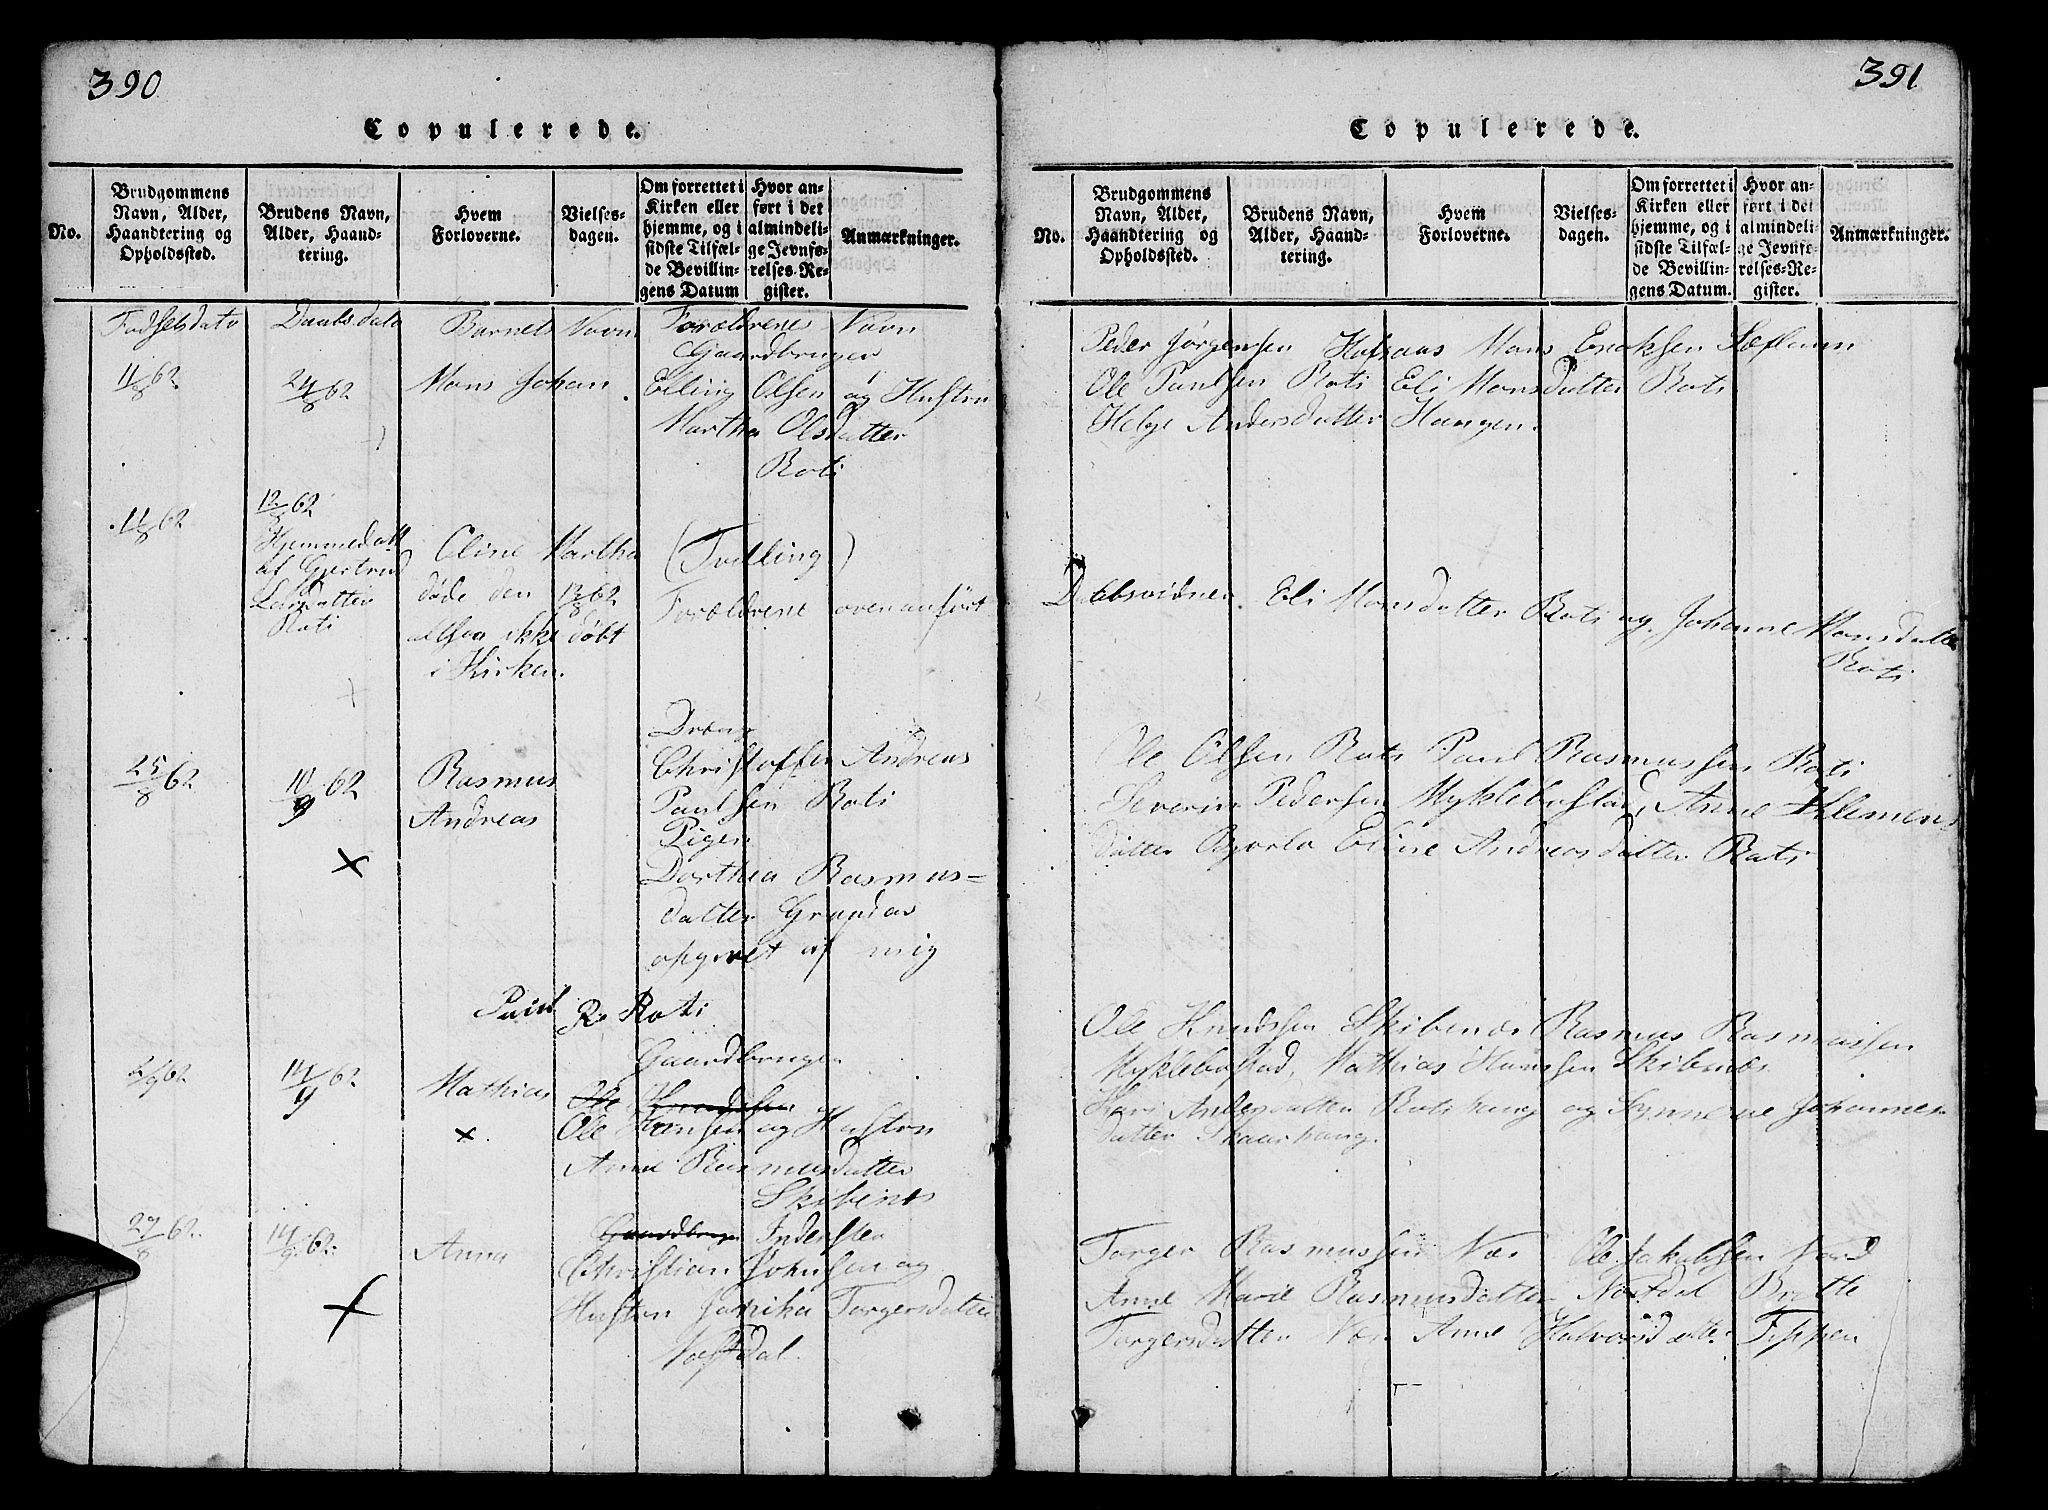 390
Copulerede.
No.
Brudgommens Navn, Alder, Haandtering og Opholdssted.
Brudens Navn, Alder, Haandtering.
Hvem Forloverne.
Vielsesdagen.
Om forrettet i Kirken eller hjemme, og i sidste Tilfælde Bevillingens Datum
Hvor anført i det almindelige Jevnførelses-Register.
Anmærkninger.
Fødselsdato Daabsdato Barnets Navn Forældrenes Navn
Gaardbruger
11/8 62 24/8 62 Mons Johan. Elling Olsen og Hustru
Martha Olsdatter
Roti
11/8 62 12/8 62
Hjemmedøbt
af Gjertrud
Larsdatter
Roti
Eline Martha (Tvilling)
døde den 13/8 62 Forældrene ovenanført
altsaa ikke døbt
i Kirken.
Dreng
25/8 62 10/9 62 Rasmus Christoffer Andreas
Andreas Paulsen Roti
Pigen
Dorthea Rasmus=
datter Grundas
opgivet af mig
Paul R. Roti
Gaardbruger
2/9 62 14/9 62 Mathias Ole Knudsen
Ole Hansen og Hustru
Anne Rasmusdatter
Skibenes
27/8 62. 14/9 62. Anna Gaardbruger Inderster
Christian Johnsen og
Hustru Janika Torgersdatter
Næstdal.
391
Copulerede.
No.
Brudgommens Navn, Alder, Haandtering og Opholdssted.
Brudens Navn, Alder, Haandtering.
Hvem Forloverne.
Vielsesdagen.
Om forrettet i Kirken eller hjemme, og i sidste Tilfælde Bevillingens Datum.
Hvor anført i det almindelige Jevnførelses-Register.
Anmærkninger.
Peder Jørgensen Mons Ericksen
Ole Paulsen Roti Eli Monsdatter Roti
Helge Andersdatter Haugen.
Daabsvidner. Eli Monsdatter Roti og Johanne Monsdatter
Roti
Ole Olsen Roti Paul Rasmussen Roti
Severin Pedersen Myklebostad, Anne Klemens
datter Eline Andreasdatter Roti
Ole Knudsen Skibenæs Rasmus Rasmussen
Myklebostad, Mathias Hanssen Skibenæs
Andersdatter Rotihaug og Synneve Johannes
datter Skaarhaug.
Torger Rasmussen Nær Ole Jakobsen
Anne Marie Rasmusdatter Brette
Torgersdatter Nær Anne Halvorsdatter